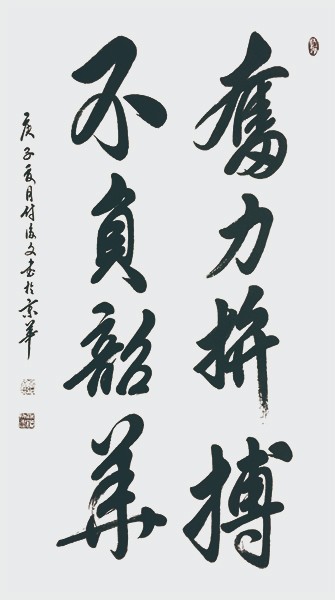 奮力拼搏
不負韶華
庚子夏月付俊文書於京華